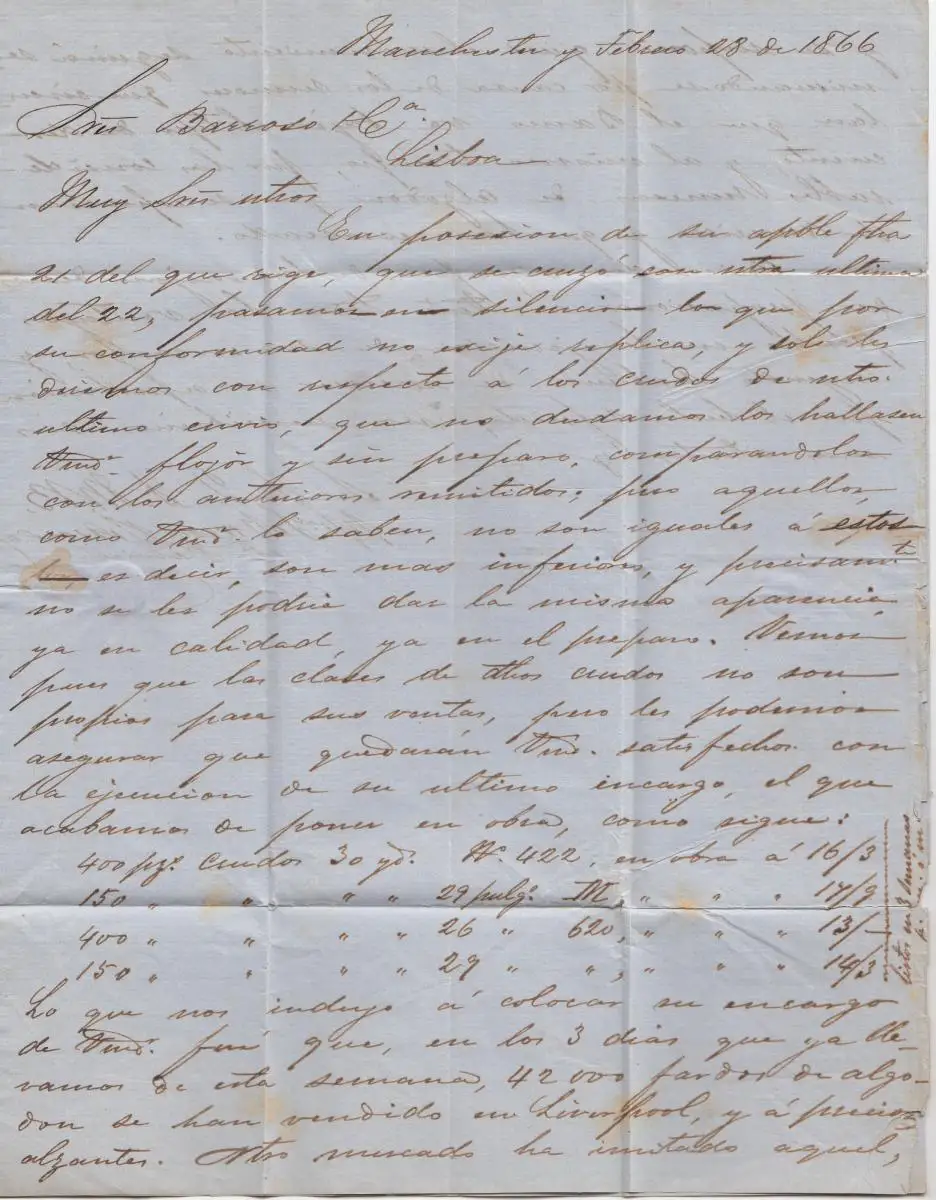 Manchester y Febrero 28 de 1866
Sres Barroso & Ca.
Lisboa
Muy Sres ntros
En posesion de su apble fha
21 del que rige, que se cruzó con ntra ultima
del 22, pasamos en silencio lo que por
su conformidad no exije replica, y solo les
diremos con respecto á los crudos de ntro.
ultimo envio, que no dudamos los hallasen
Vmds. flojos y sin preparo, comparandolos
con los anteriores remitidos; pero aquellos,
como Vmds. lo saben, no son iguales á estos
es decir, son mas inferiores, y precisamte
no se les podria dar la misma apariencia
ya en calidad, ya en el preparo. Vemos
pues que las clases de dhos crudos no son
propios para sus ventas, pero les podemos
asegurar que quedarán Vmds. satisfechos con
la ejecucion de su ultimo encargo, el que
acabamos de poner en obra, como sigue:
400 pzs. Crudos 30 yds. No. 422, en obra á 16/3
150 " " " " 29 pulgs. M, " " " 17/9
400 " " " " 26 " 620, " " " 13/-
150 " " " " 29 " ", " " " 14/3
listos en 3 semanas
Lo que nos indujo á colocar su encargo
de Vmds. fué que, en los 3 dias que ya lle-
vamos de esta semana, 42000 fardos de algo-
don se han vendido en Liverpool, y á precios
alzantes. Ntro mercado ha imitado aquel,